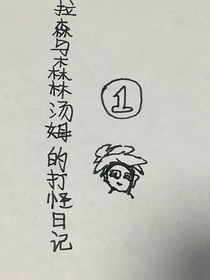 拉森马森林汤姆的打怪日记
1